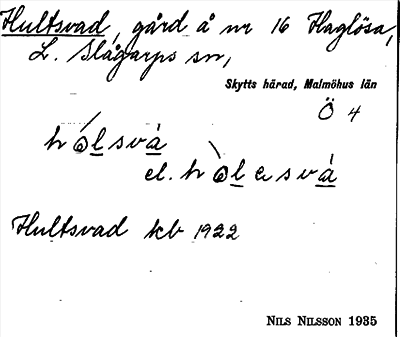 Hultsvad, gård å nr 16 Haglösa,
L. Slågarps sn,
Skytts härad, Malmöhus län
Ö 4
hólsvà
el. hòlesvá
Hultsvad kb 1922
NILS NILSSON 1935